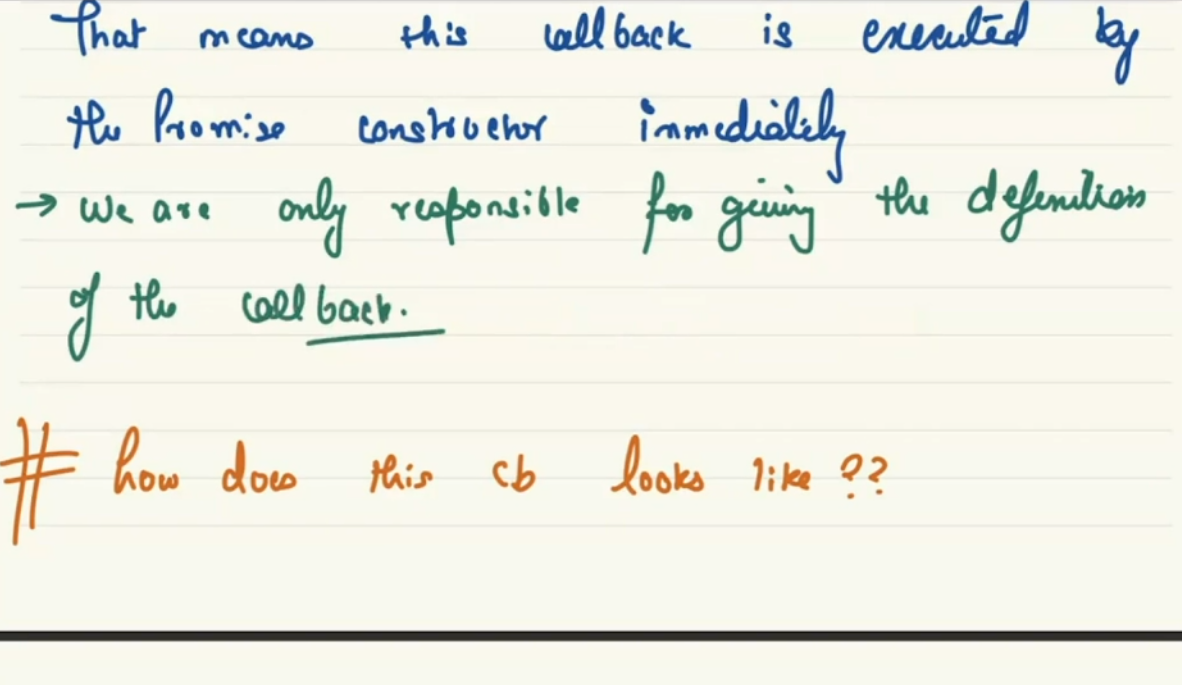 That means this callback is executed by
the Promise constructor immediately
→ we are only responsible for giving the definition
of the callback.
# how does this cb looks like ??